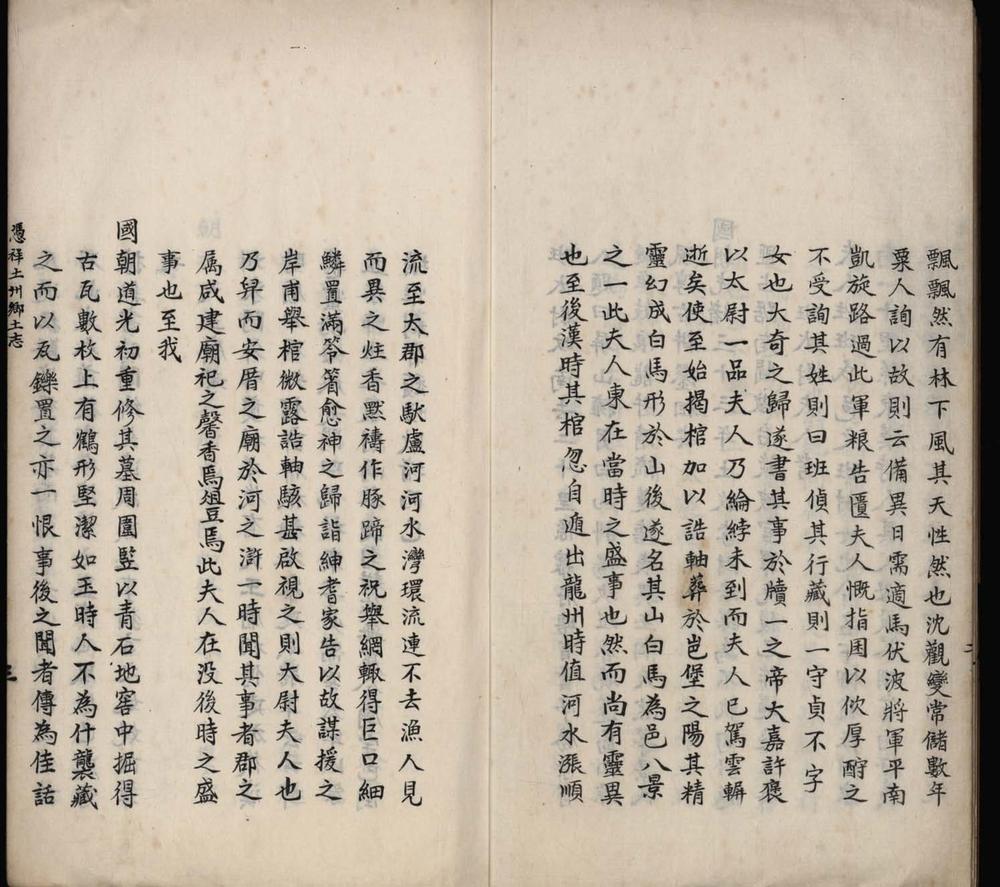 飄飄然有林下風其天性然也沈觀變常儲數年
粟人詢以故則云備異日需適馬伏波將軍平南
凱旋路過此軍粮告匱夫人慨指囷以佽厚酧之
不受詢其姓則曰班偵其行藏則一守貞不字
女也大奇之歸遂書其事於牘一之帝大嘉許褒
以太尉一品夫人乃綸綍未到而夫人已駕雲軿
逝矣使至始揭棺加以誥軸葬於邕堡之陽其精
靈幻成白馬形於山後遂名其山白馬為邑八景
之一此夫人東在當時之盛事也然而尚有靈異
也至後漢時其棺忽自遁出龍州時值河水漲順
流至太郡之馱盧河河水灣環流連不去漁人見
而異之炷香黙禱作豚蹄之祝舉網輙得巨口細
鱗置滿笭箵愈神之歸詣紳耆家告以故謀援之
岸甫舉棺微露誥軸駭甚啟視之則大尉夫人也
乃舁而安厝之廟於河之滸一時聞其事者郡之
属咸建廟祀之馨香焉俎豆焉此夫人在没後時之盛
事也至我
國朝道光初重修其墓周圍竪以青石地窖中掘得
古瓦數枚上有鶴形堅潔如玉時人不為什襲藏
之而以瓦鑠置之亦一恨事後之聞者傳為佳話
憑祥土州鄉土志
三